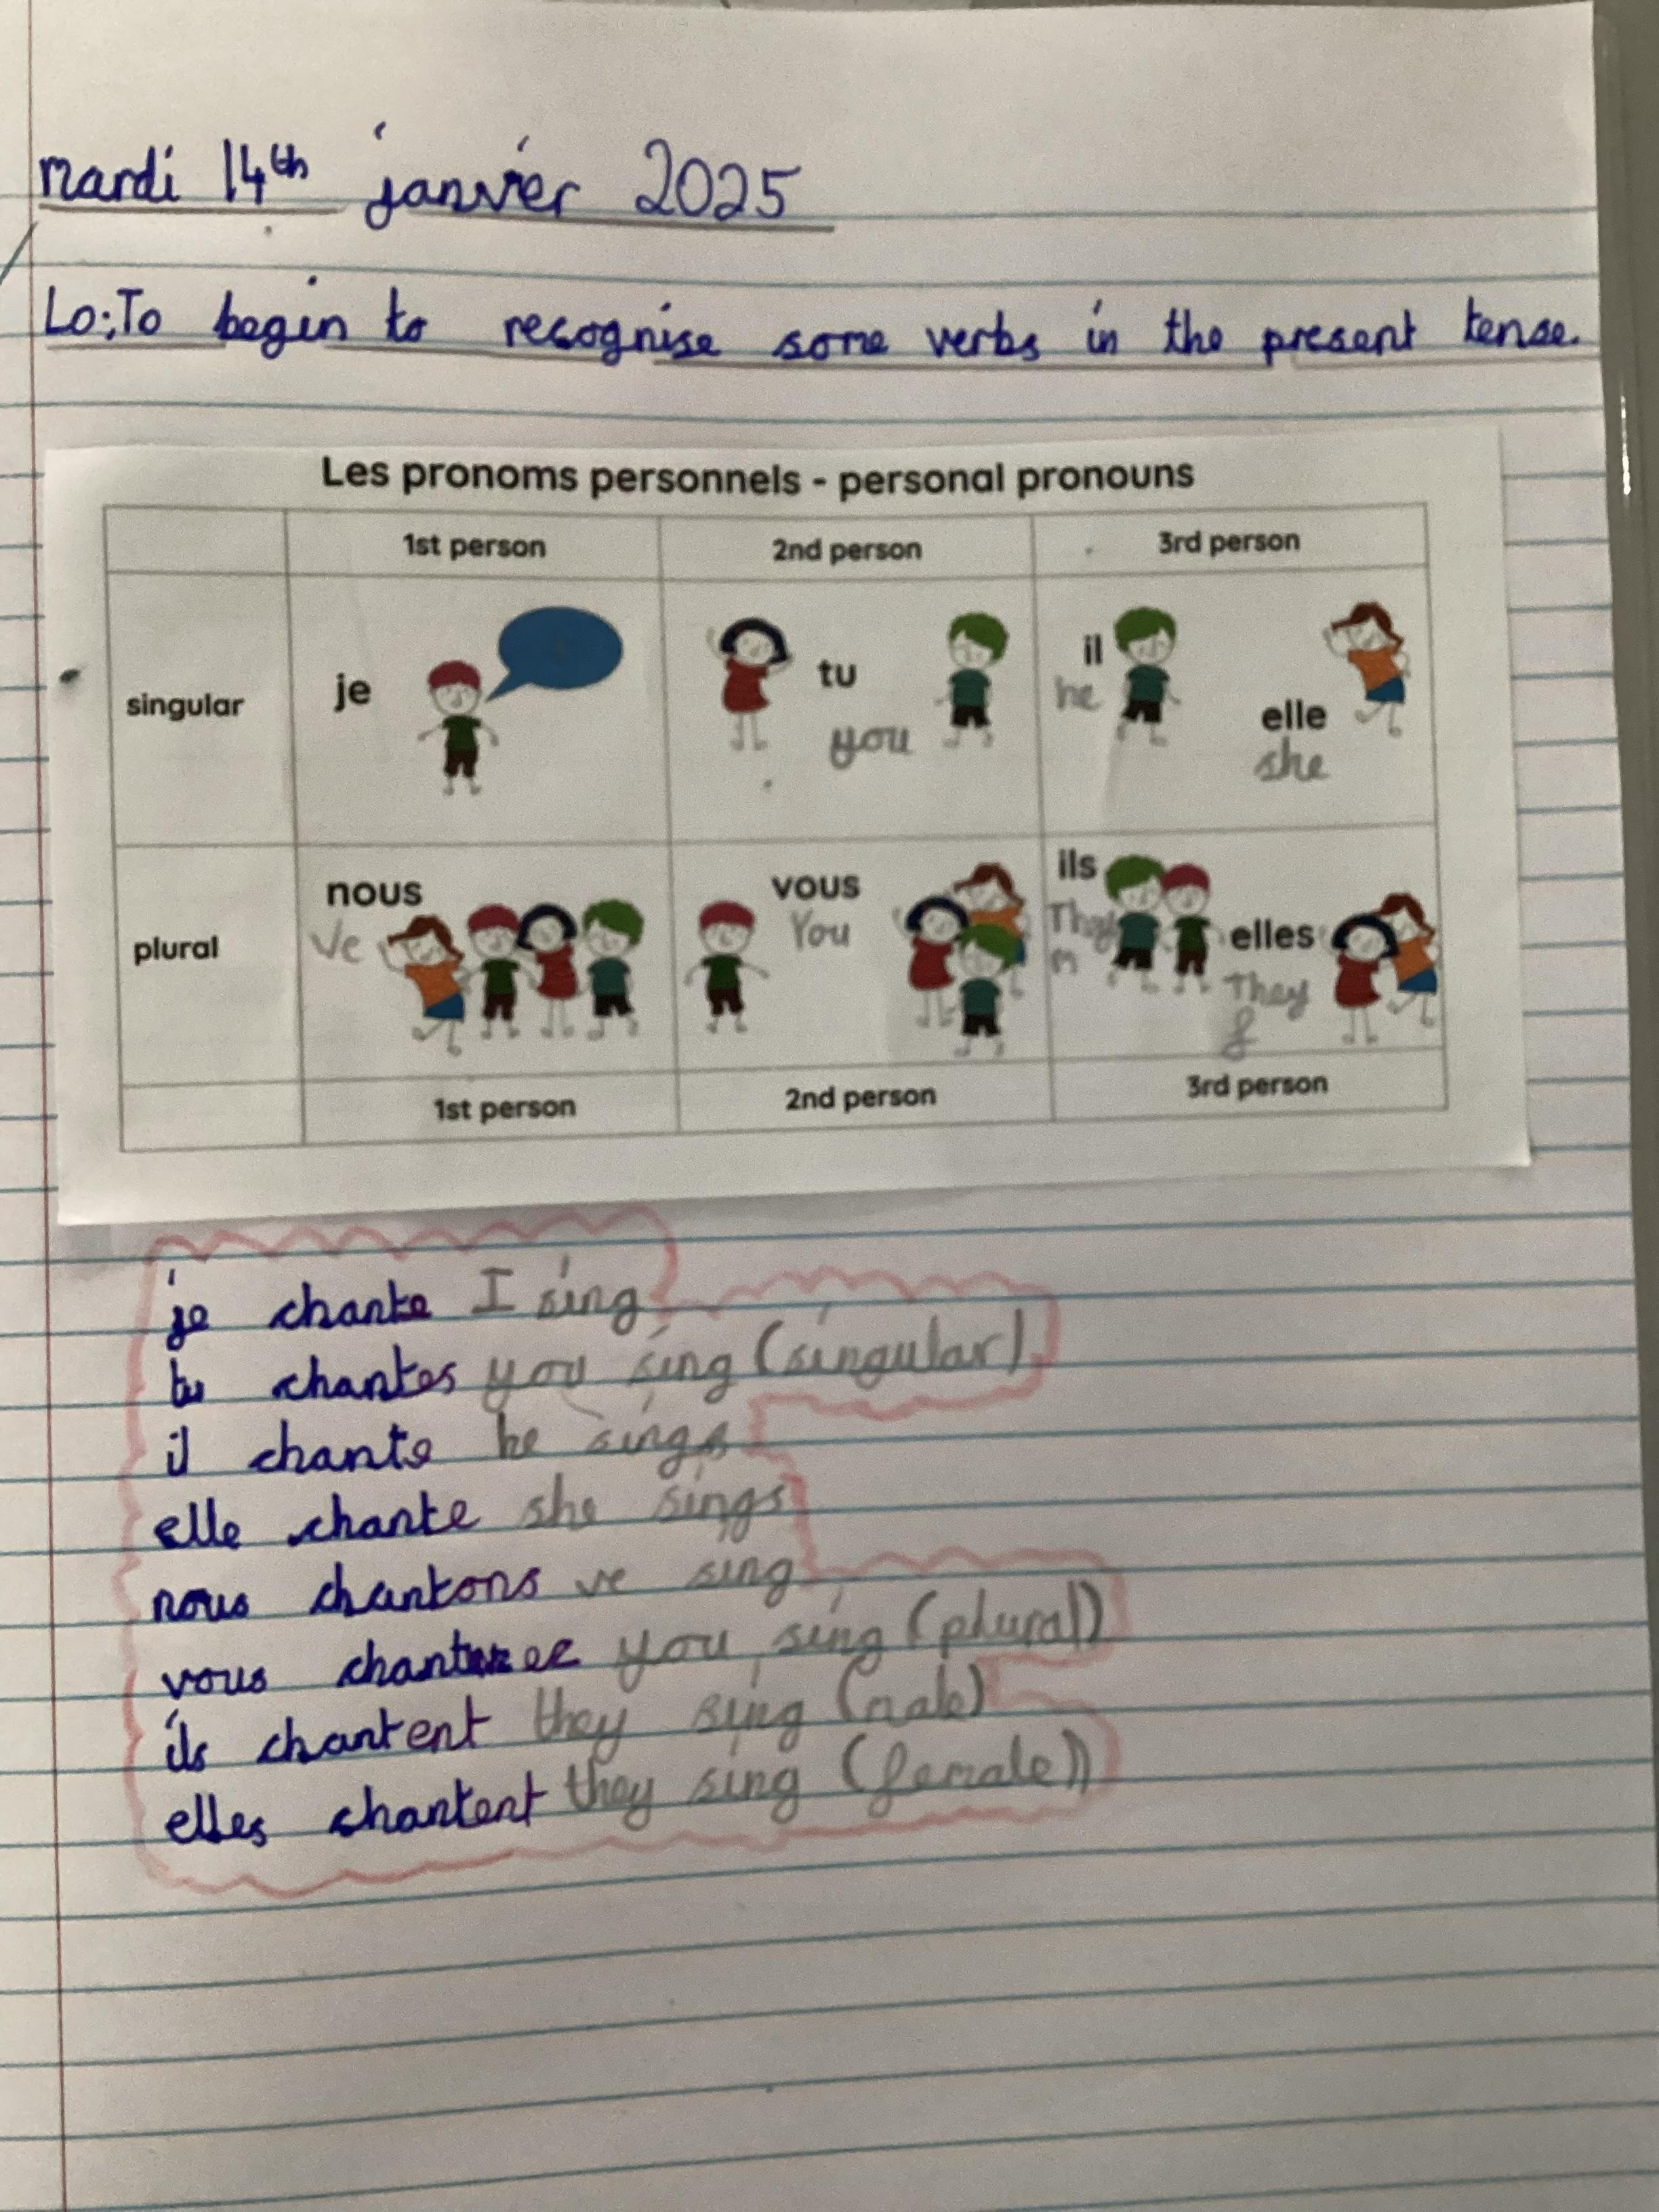 mardi 14th janvier 2025
Lo: To begin to recognise some verbs in the present tense.
Les pronoms personnels - personal pronouns
1st person 2nd person 3rd person
singular je tu you il he elle she
plural nous ve vous You ils They m elles They f
1st person 2nd person 3rd person
je chante I sing
tu chantes you sing (singular)
il chante he sings
elle chante she sings
nous chantons ve sing
vous you sing (plural)
ils chantent they sing (male)
elles chantent they sing (female)